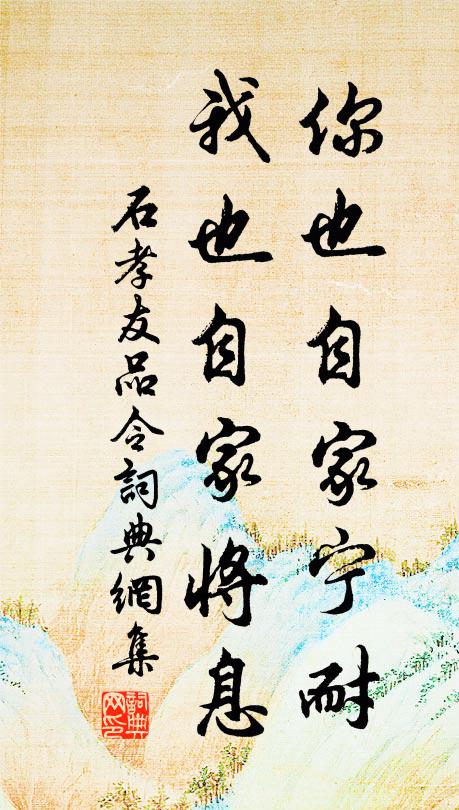 你也自家宁耐
我也自家将息
石孝友品令詞典網集
詞典網印